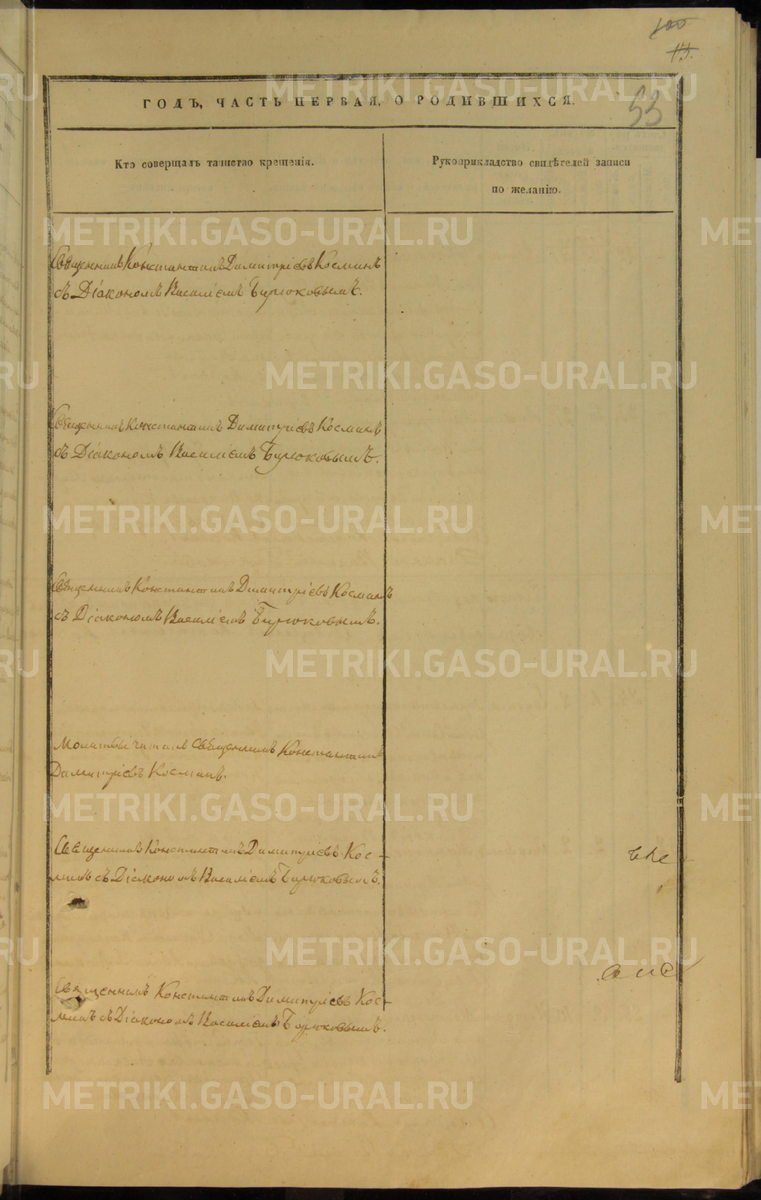 55
ГОДЪ, ЧАСТЬ ПЕРВАЯ, О РОДИВШИХСЯ.
Кто совершалъ таинство крещенія.
Рукоприкладство свидѣтелей записи
по желанію.
Священникъ Константинъ Димитріевъ Косминъ
съ Діакономъ Василіемъ Бирюковымъ.
Священникъ Константинъ Димитріевъ Косминъ
съ Діакономъ Василіемъ Бирюковымъ.
Священникъ Константинъ Димитріевъ Косминъ
съ Діакономъ Василіемъ Бирюковымъ.
Молитвы читалъ Священникъ Константинъ
Димитріевъ Косминъ.
Священникъ Константинъ Димитріевъ Кос-
минъ съ Діакономъ Василіемъ Бирюковымъ.
Священникъ Константинъ Димитріевъ Кос-
минъ съ Діакономъ Василіемъ Бирюковымъ.
METRIKI.GASO-URAL.RU